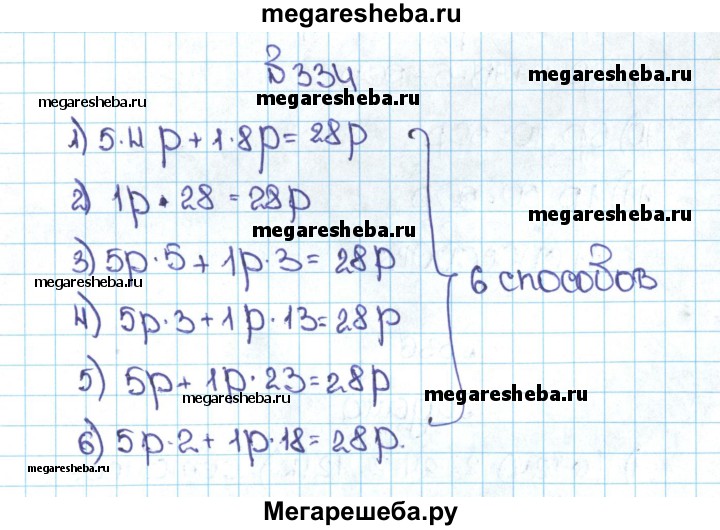 megaresheba.ru
№334
megaresheba.ru
megaresheba.ru
megaresheba.ru
1) 5·4р+1·8р=28р
2) 1р·28=28р
megaresheba.ru
megaresheba.ru
3) 5р·5+1р·3=28р
megaresheba.ru
6 способов
4) 5р·3+1р·13=28р
5) 5р+1р·23=28р
megaresheba.ru
megaresheba.ru
6) 5р·2+1р·18=28р.
megaresheba.ru
Мегарешеба.ру